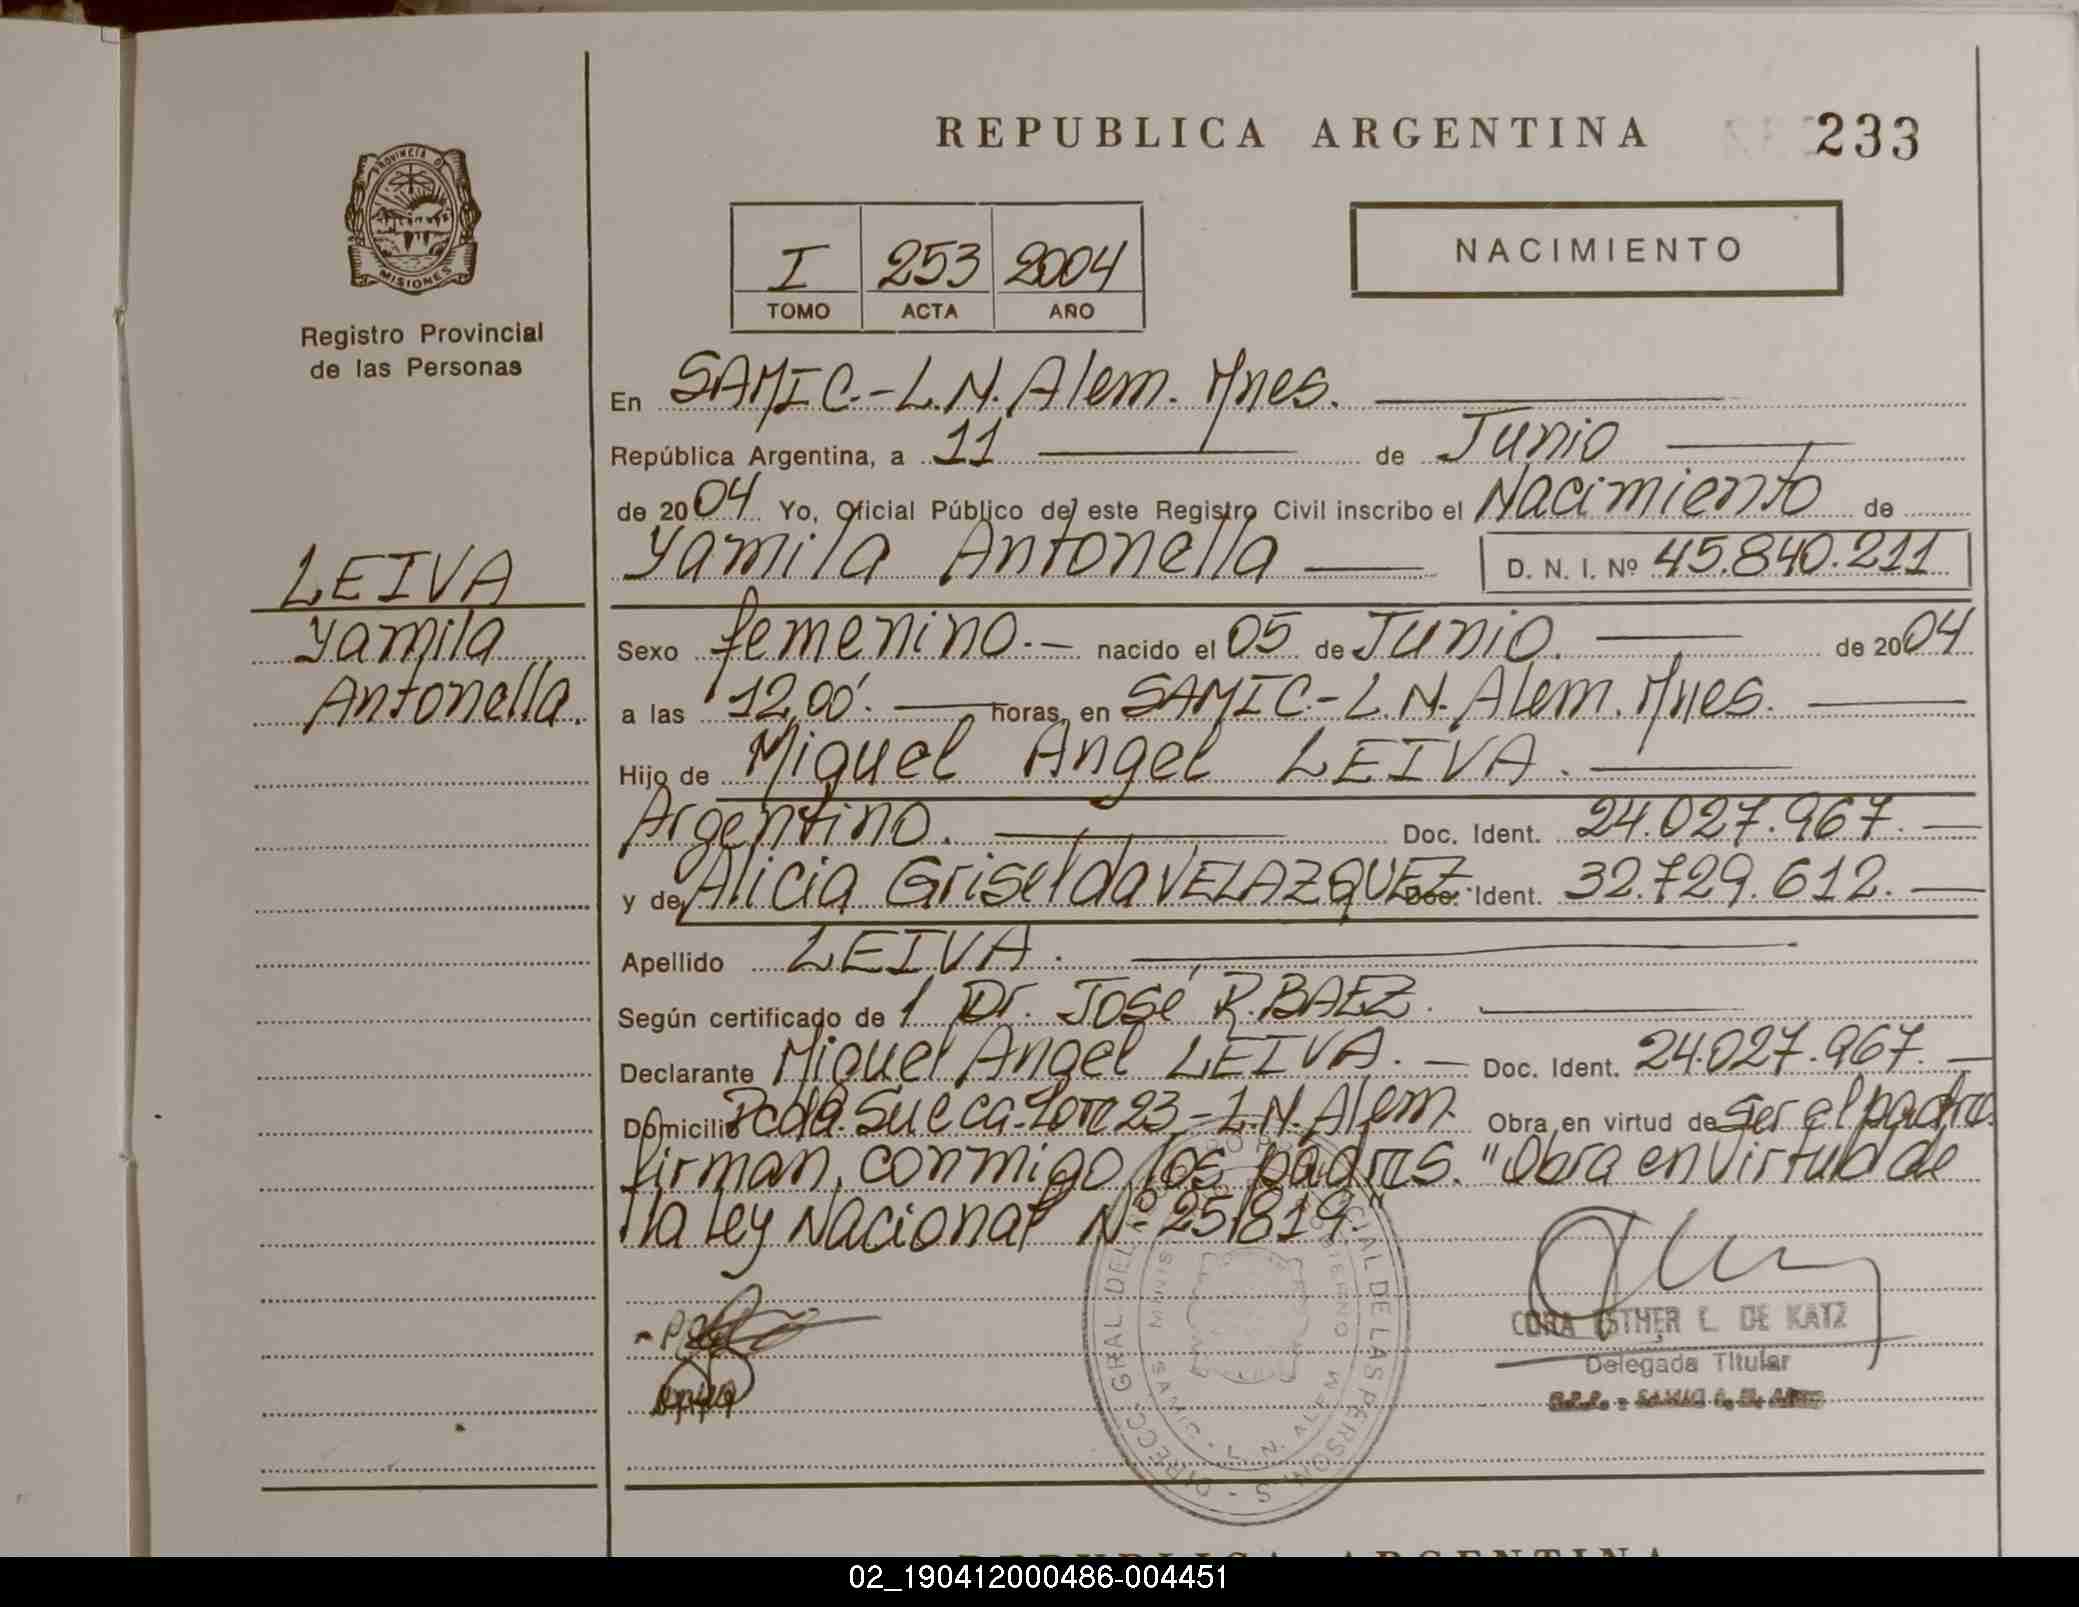 REPUBLICA ARGENTINA
233
PROVINCIA DE
MISIONES
Registro Provincial
de las Personas
I 253 2004
TOMO ACTA AÑO
NACIMIENTO
En SAMIC.-L.N.Alem. Mnes.
República Argentina, a 11 de Junio
de 2004 Yo, Oficial Público del este Registro Civil inscribo el Nacimiento de
Yamila Antonella D. N. I. Nº 45.840.211
LEIVA
Yamila
Antonella.
Sexo femenino.- nacido el 05 de Junio. de 2004
a las 12,00'. horas, en SAMIC-L.N.Alem.Mnes.
Hijo de Miguel Angel LEIVA.
Argentino. Doc. Ident. 24.027.967.
y de Alicia Griselda VELAZQUEZ. Doc. Ident. 32.729.612.
Apellido LEIVA.
Según certificado de 1 Dr. José R.BAEZ.
Declarante Miguel Angel LEIVA. Doc. Ident. 24.027.967.
Domicilio Pcda. Sueca-Lote 23-L.N.Alem. Obra en virtud de ser el padre.
firman, conmigo los padres. "Obra en virtud de
la Ley Nacional Nº 25.819."
CORA ESTHER L. DE KATZ
Delegada Titular
DIRECC. GRAL. DEL REGISTRO PROVINCIAL DE LAS PERSONAS
SAMIC - L. N. ALEM
REPUBLICA ARGENTINA
02_190412000486-004451